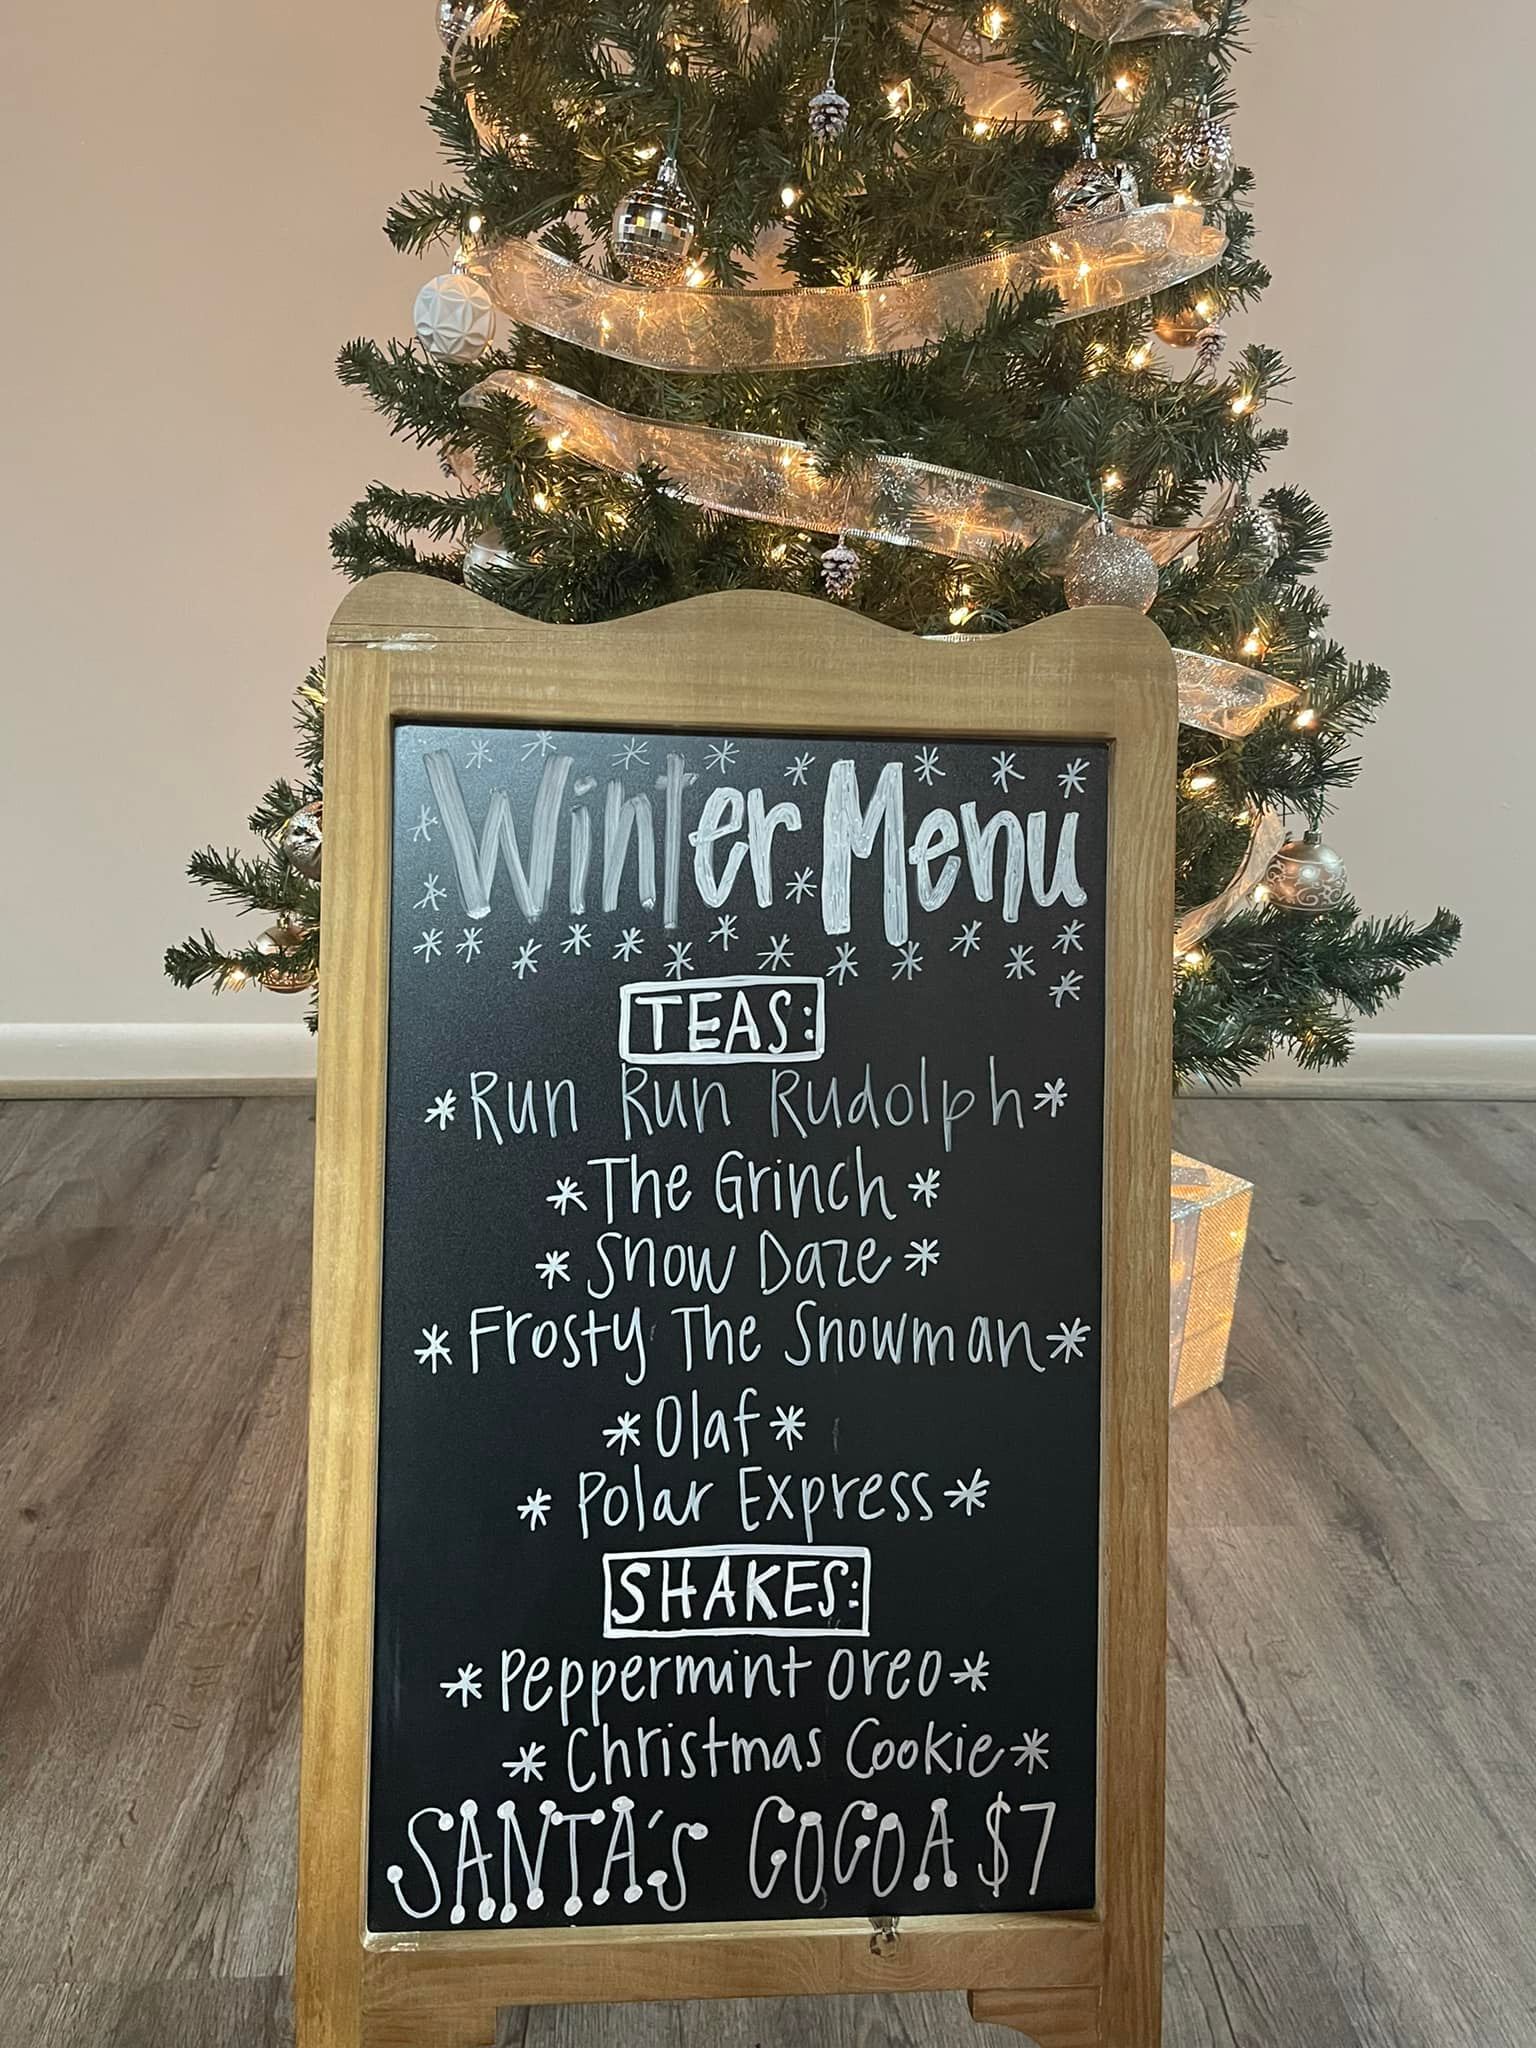 Winter Menu
TEAS:
*Run Run Rudolph*
*The Grinch*
*Snow Daze*
*Frosty The Snowman*
*Olaf*
*Polar Express*
SHAKES:
*Peppermint Oreo*
*Christmas Cookie*
SANTA'S COCOA $7